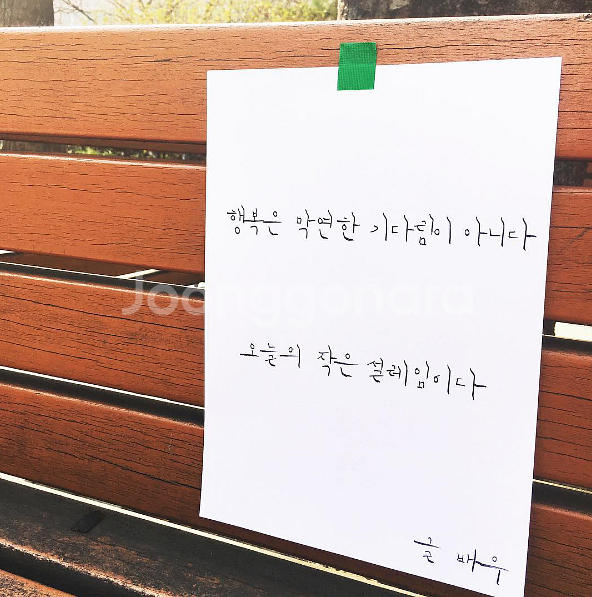 행복은 막연한 기다림이 아니다
Joonggonara
오늘의 작은 설레임이다
글 배우